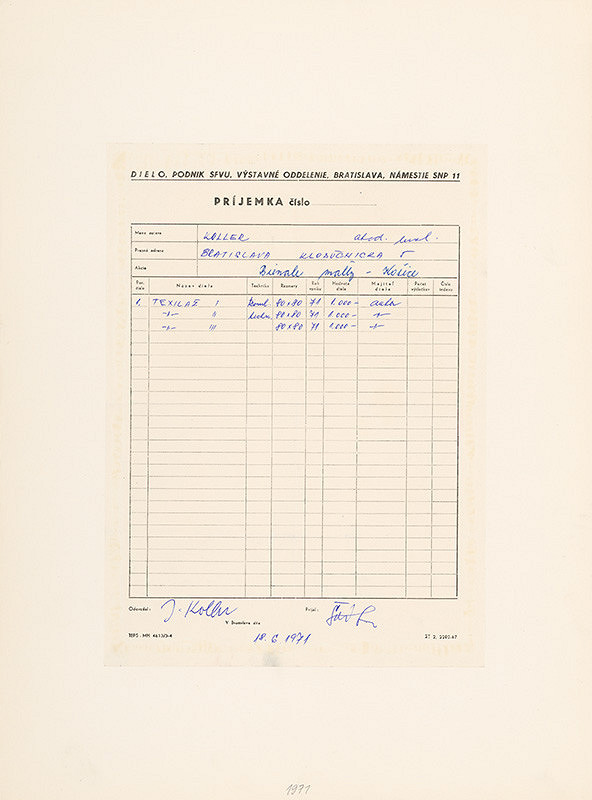 DIELO, PODNIK SFVU, VÝSTAVNÉ ODDELENIE, BRATISLAVA, NÁMESTIE SNP 11
PRÍJEMKA číslo
Meno autora KOLLER akad. mal.
Presná adresa BRATISLAVA KLOBUČNICKA 5
Akcia Bienale maľby - Košice
Por. číslo Názov diela Technika Rozmery Rok vzniku Hodnota diela Majiteľ diela Počet výstavkov Číslo
1. TEXTILÁŽ I komb. 80x80 71 1.000- autor
-"- II techn. 80x80 71 1.000- -"-
-"- III 80x80 71 1.000- -"-
Odovzdal: J. Koller Prijal:
V Bratislave dňa
18. 6 1971
1971